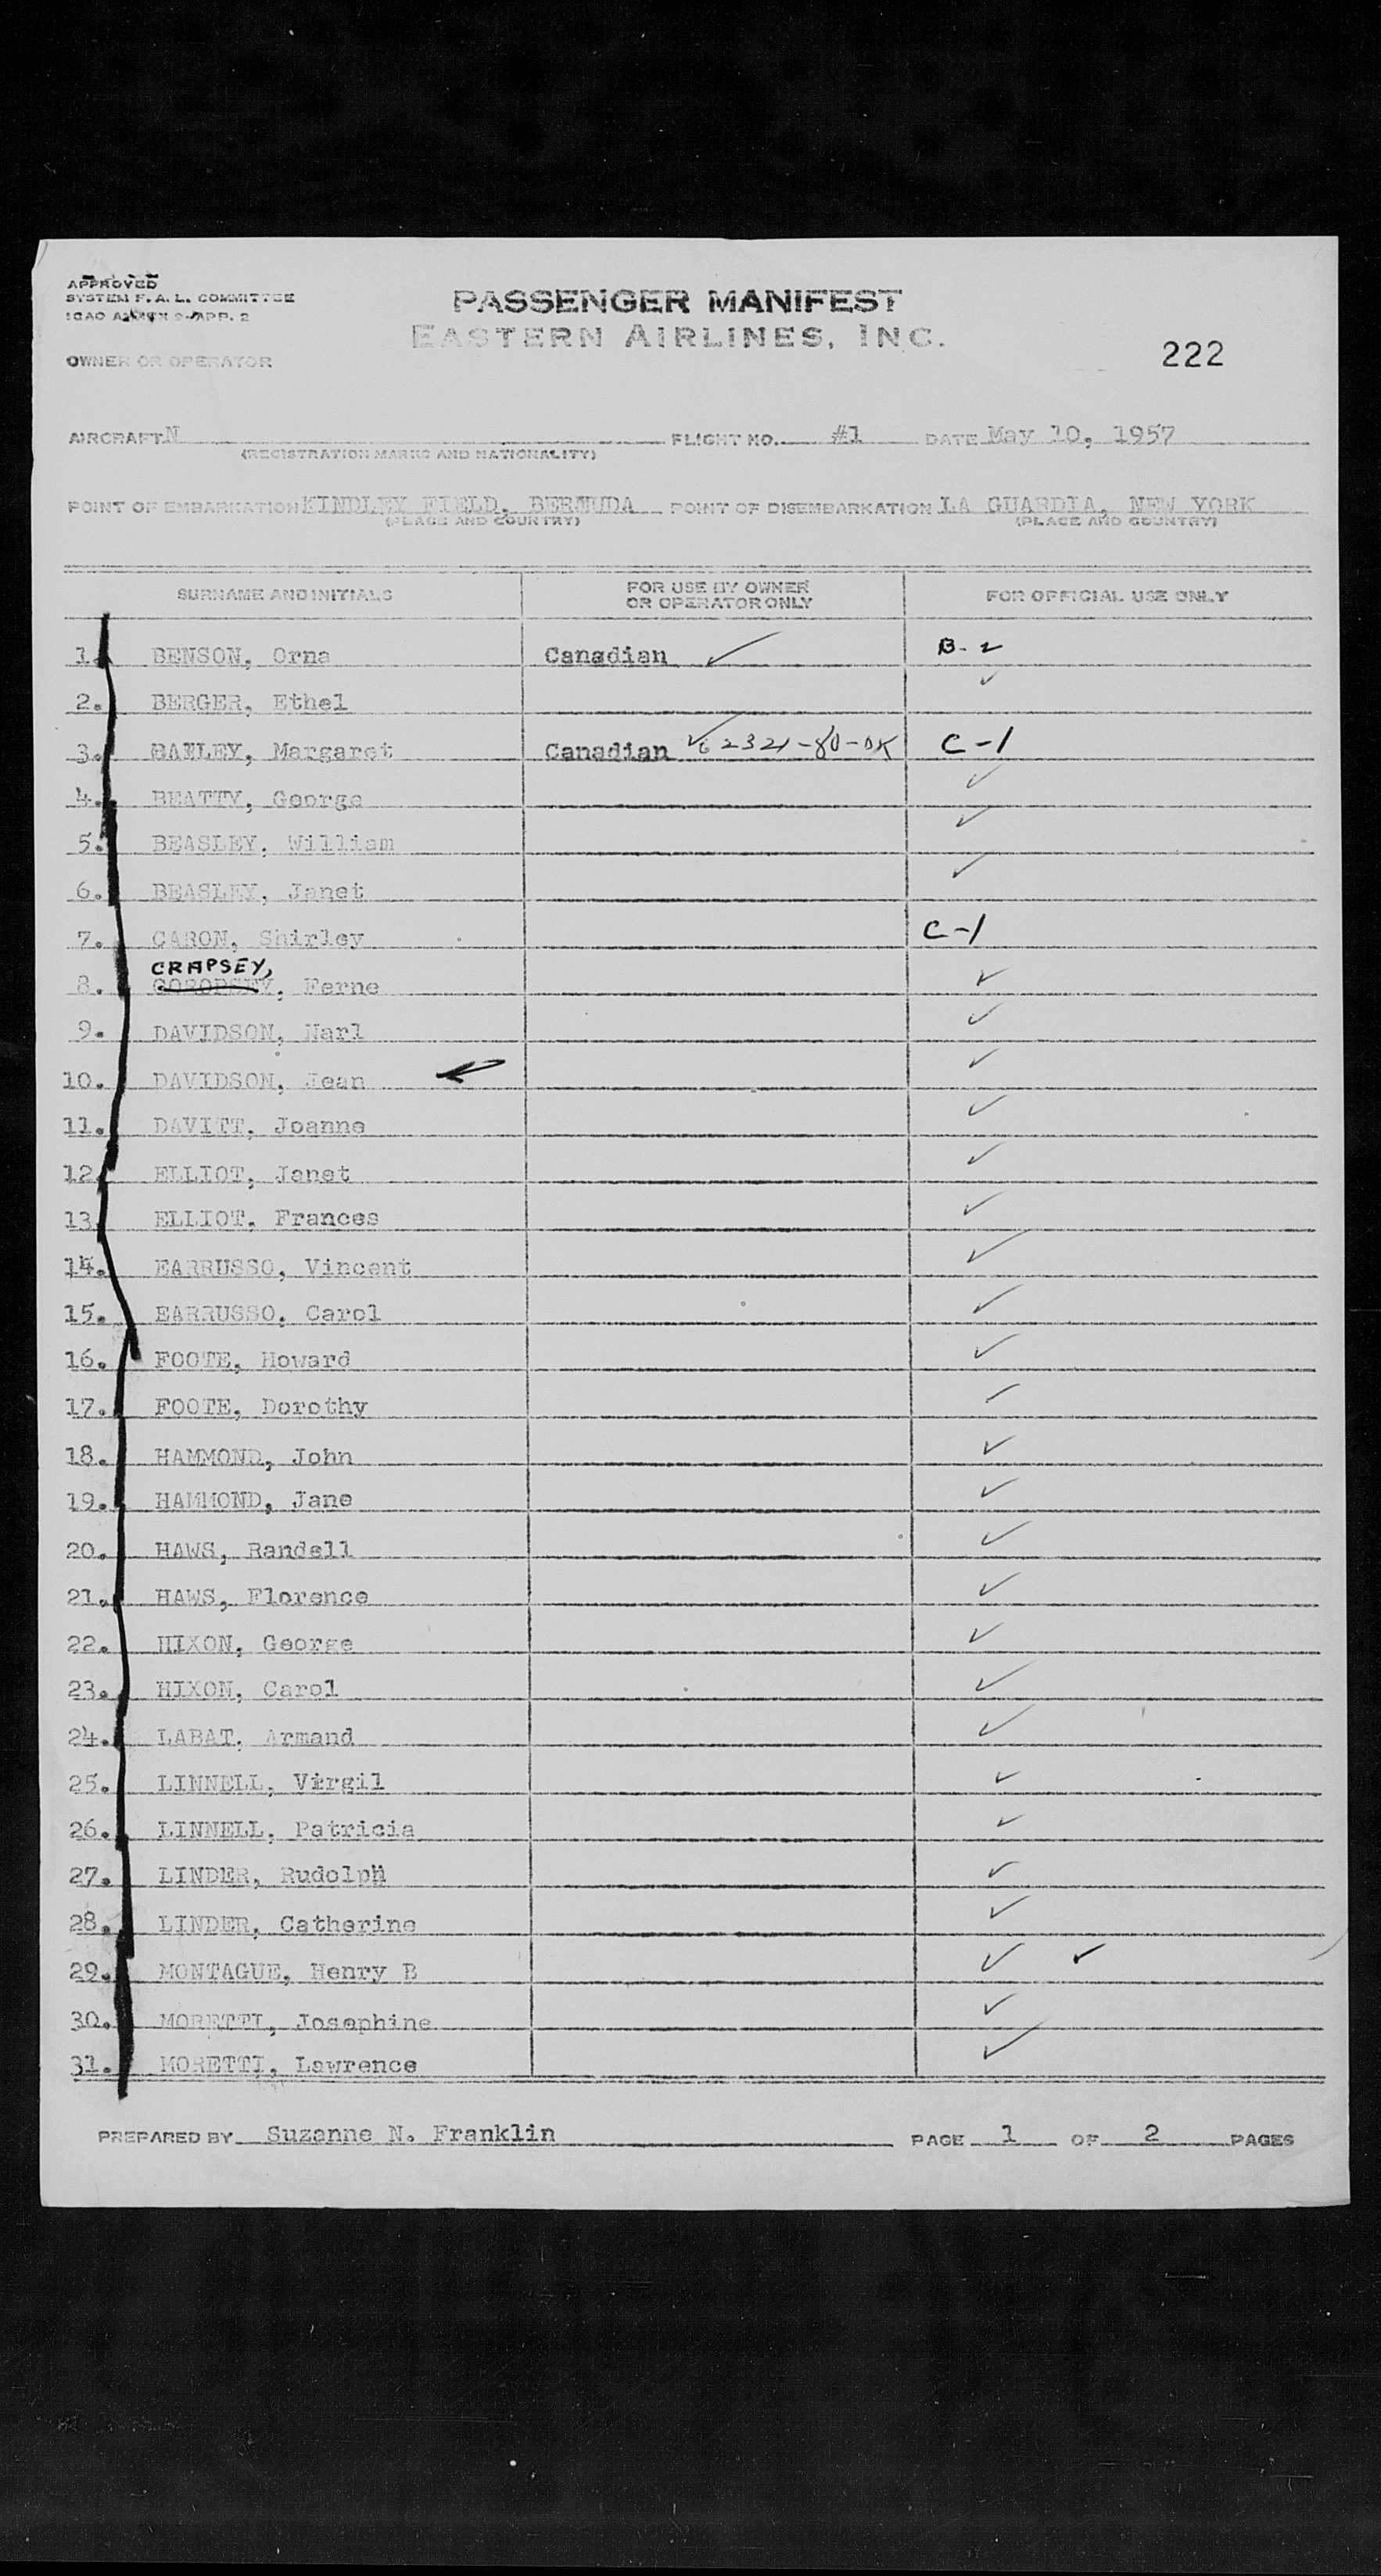 APPROVED
SYSTEM F. A. L. COMMITTEE
ICAO ANNEX 9-APP. 2
PASSENGER MANIFEST
EASTERN AIRLINES, INC.
OWNER OR OPERATOR
222
AIRCRAFT N FLIGHT NO. #1 DATE May 10, 1957
(REGISTRATION MARKS AND NATIONALITY)
POINT OF EMBARKATION KINDLEY FIELD, BERMUDA POINT OF DISEMBARKATION LA GUARDIA, NEW YORK
(PLACE AND COUNTRY) (PLACE AND COUNTRY)
SURNAME AND INITIALS FOR USE BY OWNER OR OPERATOR ONLY FOR OFFICIAL USE ONLY
1. BENSON, Orna Canadian ✓ B-2
2. BERGER, Ethel ✓
3. BAILEY, Margaret Canadian ✓ 2321-80-OK C-1
4. BEATTY, George ✓
5. BEASLEY, William ✓
6. BEASLEY, Janet ✓
7. CARON, Shirley C-1
CRAPSEY,
8. Ferne ✓
9. DAVIDSON, Narl ✓
10. DAVIDSON, Jean ✓
11. DAVITT, Joanne ✓
12. ELLIOT, Janet ✓
13. ELLIOT, Frances ✓
14. EARRUSSO, Vincent ✓
15. EARRUSSO, Carol ✓
16. FOOTE, Howard ✓
17. FOOTE, Dorothy ✓
18. HAMMOND, John ✓
19. HAMMOND, Jane ✓
20. HAWS, Randell ✓
21. HAWS, Florence ✓
22. HIXON, George ✓
23. HIXON, Carol ✓
24. LABAT, Armand ✓
25. LINNELL, Virgil ✓
26. LINNELL, Patricia ✓
27. LINDER, Rudolph ✓
28. LINDER, Catherine ✓
29. MONTAGUE, Henry B ✓ ✓
30. MORETTI, Josephine ✓
31. MORETTI, Lawrence ✓
PREPARED BY Suzanne N. Franklin PAGE 1 OF 2 PAGES